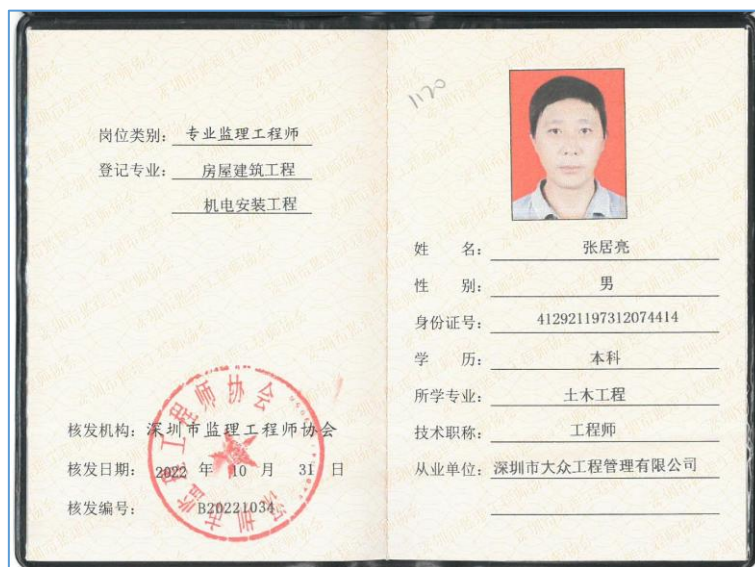 岗位类别：专业监理工程师
登记专业：房屋建筑工程
机电安装工程
核发机构：深圳市监理工程师协会
核发日期：2022 年 10 月 31 日
核发编号：B20221034
深圳市监理工程师协会
1120
姓 名：张居亮
性 别：男
身份证号：412921197312074414
学 历：本科
所学专业：土木工程
技术职称：工程师
从业单位：深圳市大众工程管理有限公司